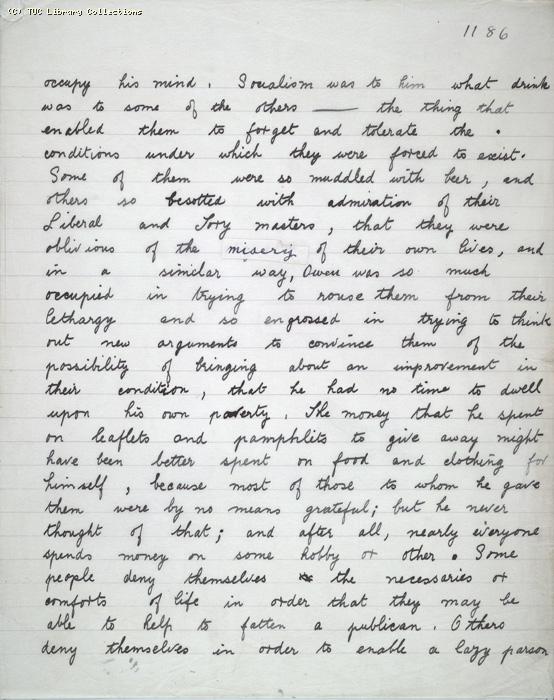 (C) TUC Library Collections
1186
occupy his mind. Socialism was to him what drink
was to some of the others — the thing that
enabled them to forget and tolerate the
conditions under which they were forced to exist.
Some of them were so muddled with beer, and
others so besotted with admiration of their
Liberal and Tory masters, that they were
oblivious of the misery of their own lives, and
in a similar way, Owen was so much
occupied in trying to rouse them from their
lethargy and so engrossed in trying to think
out new arguments to convince them of the
possibility of bringing about an improvement in
their condition, that he had no time to dwell
upon his own poverty. The money that he spent
on leaflets and pamphlets to give away might
have been better spent on food and clothing for
himself, because most of those to whom he gave
them were by no means grateful; but he never
thought of that; and after all, nearly everyone
spends money on some hobby or other. Some
people deny themselves the necessaries or
comforts of life in order that they may be
able to help to fatten a publican. Others
deny themselves in order to enable a lazy parson